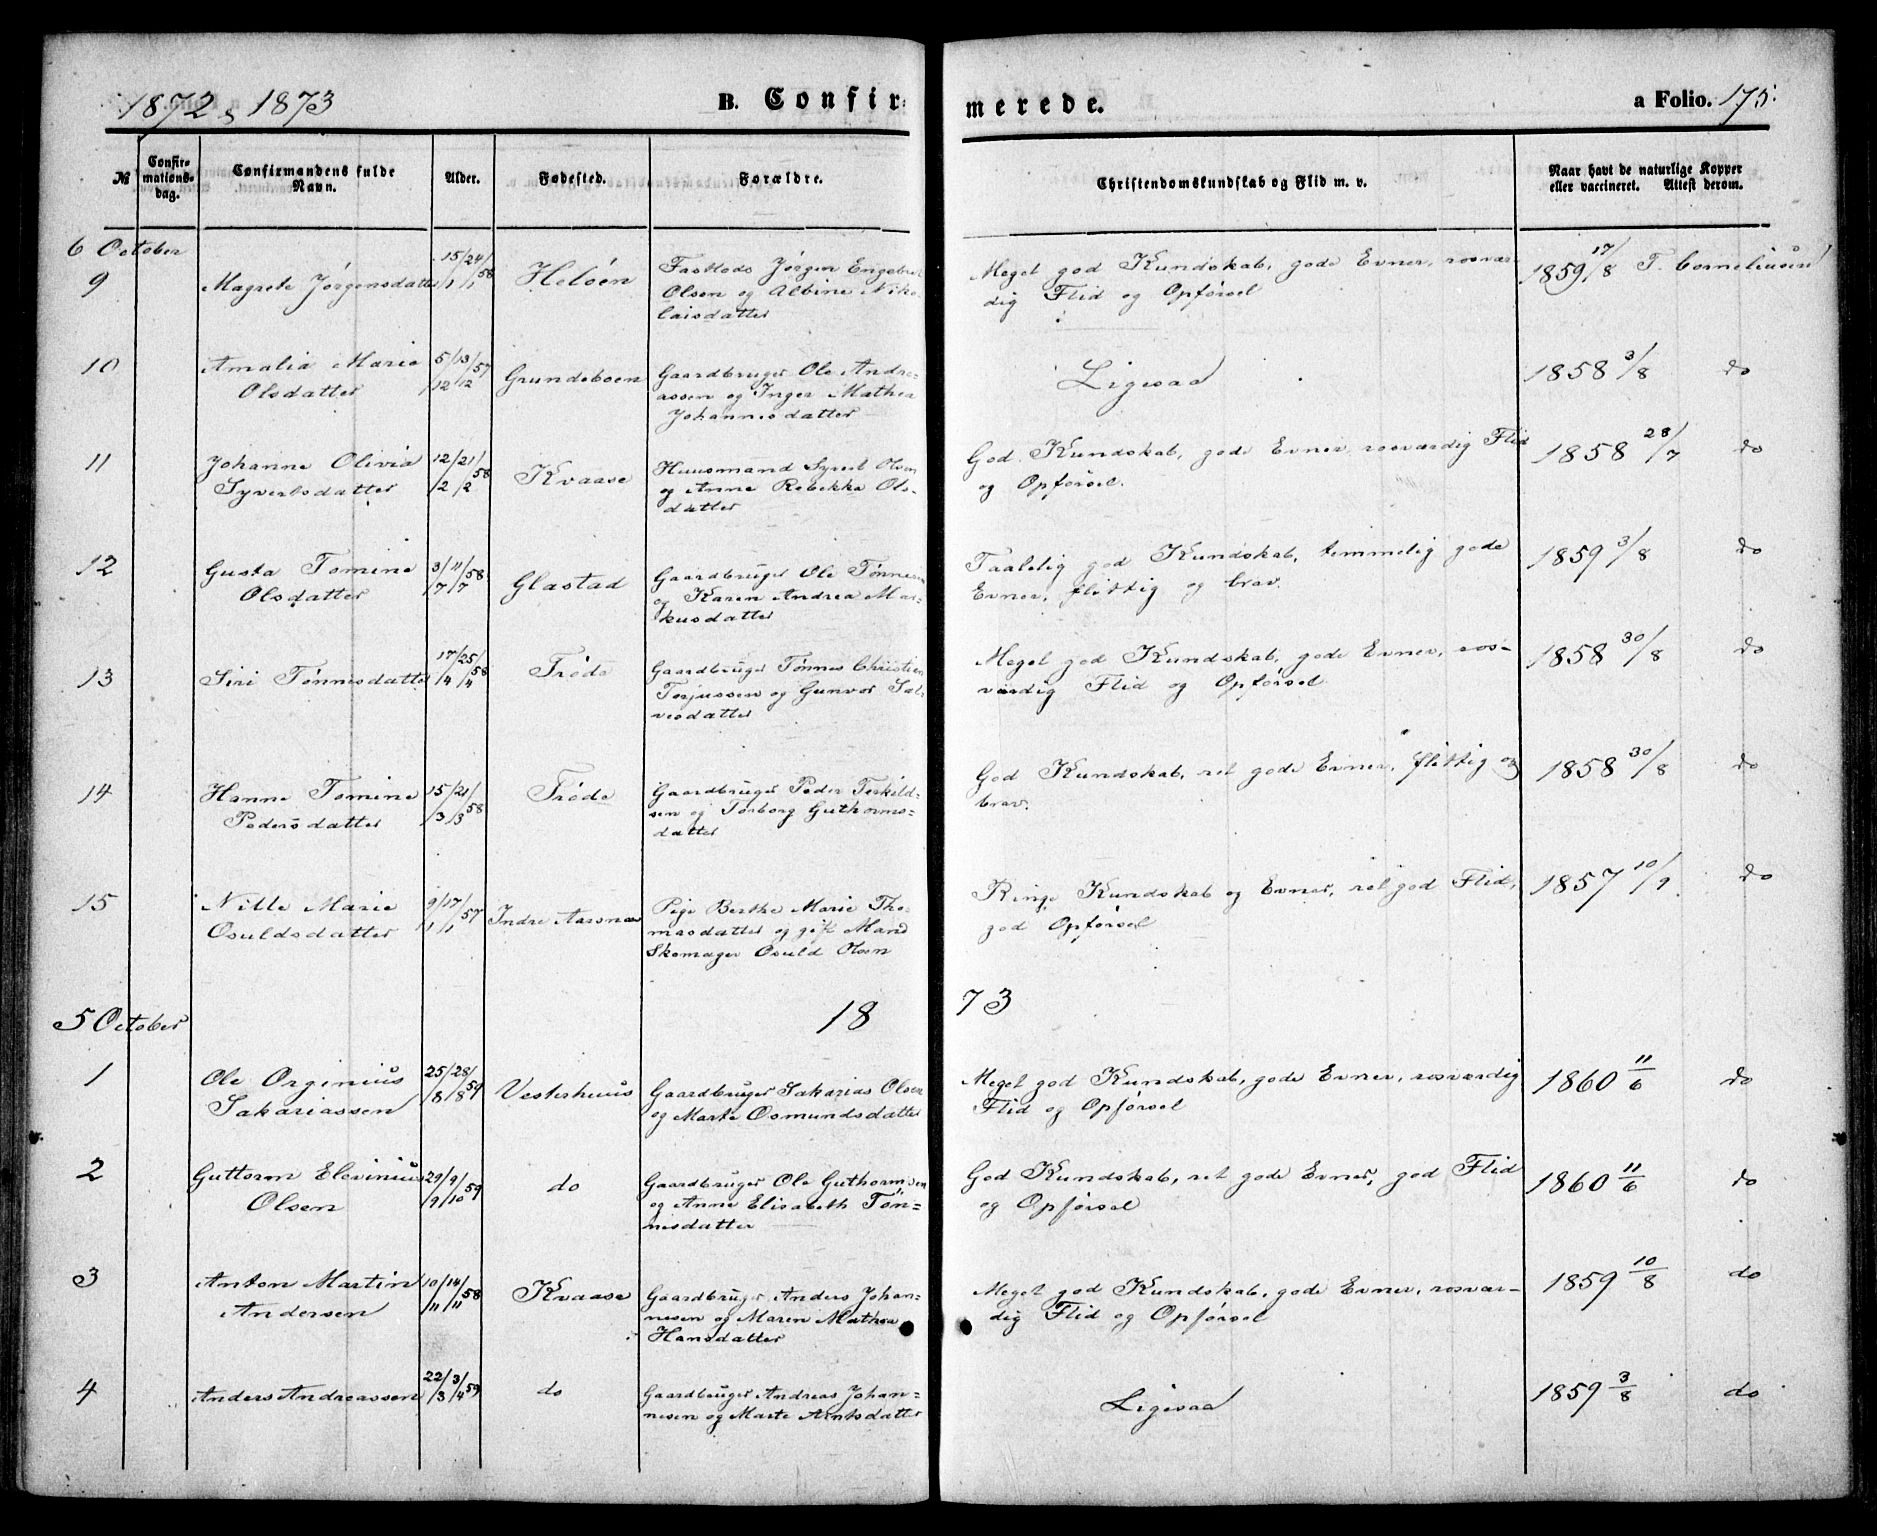 1872 & 1873 B. Confirmerede. a Folio. 175.
№ Confirmationsdag. Confirmandens fulde Navn. Alder. Fødested. Forældre. Christendomskundskab og Flid m. v. Naar havt de naturlige Kopper eller vaccineret. Attest derom.
6 October
9 Magrete Jørgensdatter 15/1 24/1 58 Heløen Fastlods Jørgen Engebret
Olsen og Albine Niko-
laisdatter
Meget god Kundskab, gode Evner, rosvær-
dig Flid og Opførsel
1859 17/8 T. Corneliusen
10 Amalia Marie 5/12 13/12 57 Grundeboen Gaardbruger Ole Andre-
Olsdatter assen og Inger Mathea
Johannesdatter
Ligesaa 1858 3/8 do
11 Johanne Olivia 12/2 21/2 58 Kvaase Huusmand Syvert Olsen
Syvertsdatter og Anne Rebekka Ols-
datter
God Kundskab, gode Evner, rosværdig Flid
og Opførsel.
1858 28/7 do
12 Gusta Tomine 3/7 11/7 58 Glastad Gaardbruger Ole Tønnesen
Olsdatter og Karen Andrea Mar-
kusdatter
Taalelig god Kundskab, temmelig gode
Evner, flittig og brav.
1859 3/8 do
13 Siri Tønnisdatter 17/4 25/4 58 Frøde Gaardbruger Tønnes Christian
Torjussen og Gunvor Sal-
vesdatter
Meget god Kundskab, gode Evner, ros-
værdig Flid og Opførsel
1858 30/8 do
14 Hanne Tomine 15/3 21/3 58 Frøde Gaardbruger Peder Terkild-
Pedersdatter sen og Torborg Guthorms-
datter
God Kundskab, ret gode Evner, flittig og
brav.
1858 30/8 do
15 Nille Marie 9/1 17/1 57 Indre Aarsnæs Pige Berthe Marie Tho-
Osuldsdatter masdatter og gift Mand
Skomager Osuld Olsen
Ringe Kundskab og Evner, ret god Flid,
god Opførsel
1857 10/9 do
5 October 1873
1 Ole Orginius 25/8 28/8 59 Vesterhuus Gaardbruger Sakarias Olsen
Sakariassen og Marte Osmundsdatter
Meget god Kundskab, gode Evner, rosværdig
Flid og Opførsel
1860 11/6 do
2 Guttorm Elevinius 29/9 9/10 59 do Gaardbruger Ole Guthormsen
Olsen og Anne Elisabeth Tøn-
nisdatter
God Kundskab, ret gode Evner, god Flid
og Opførsel
1860 11/6 do
3 Anton Martin 10/11 14/11 58 Kvaase Gaardbruger Anders Johan-
Andersen nesen og Maren Mathea
Hansdatter
Meget god Kundskab, gode Evner, rosvær-
dig Flid og Opførsel
1859 10/8 do
4 Anders Andreassen 22/3 3/4 59 do Gaardbruger Andreas Johan-
nesen og Marte Arntsdatter
Ligesaa 1859 3/8 do